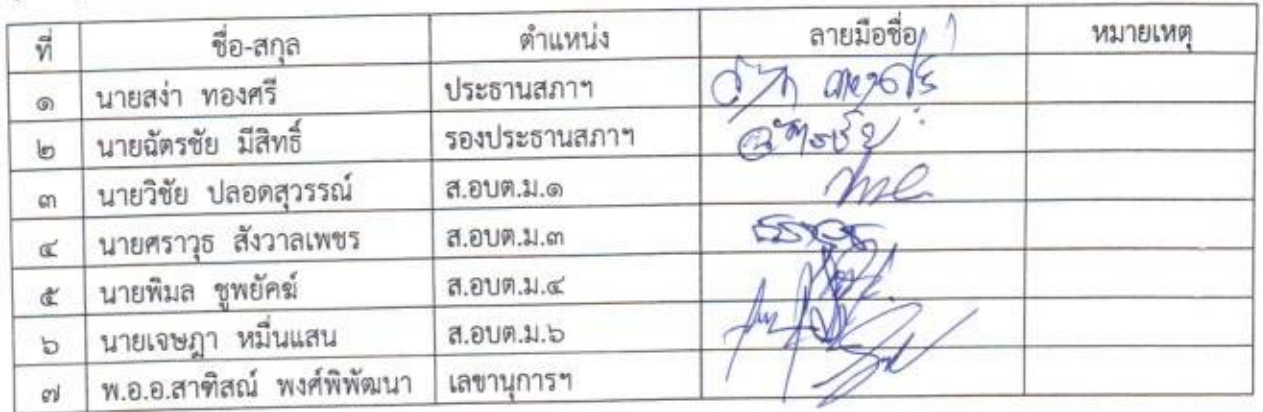 ที่ ชื่อ-สกุล ตำแหน่ง ลายมือชื่อ หมายเหตุ
๑ นายสง่า ทองศรี ประธานสภาฯ
๒ นายฉัตรชัย มีสิทธิ์ รองประธานสภาฯ ฉัตรชัย
๓ นายวิชัย ปลอดสุวรรณ์ ส.อบต.ม.๑
๔ นายศราวุธ สังวาลเพชร ส.อบต.ม.๓
๕ นายพิมล ชูพยัคฆ์ ส.อบต.ม.๔
๖ นายเจษฎา หมื่นแสน ส.อบต.ม.๖
๗ พ.อ.อ.สาฑิสณ์ พงศ์พิพัฒนา เลขานุการฯ